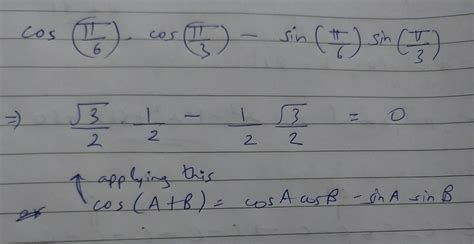 cos (π/6) . cos (π/3) - sin (π/6) sin (π/3)
⇒ √3/2 . 1/2 - 1/2 √3/2 = 0
↑ applying this
cos (A+B) = cosA cosB - sinA sinB